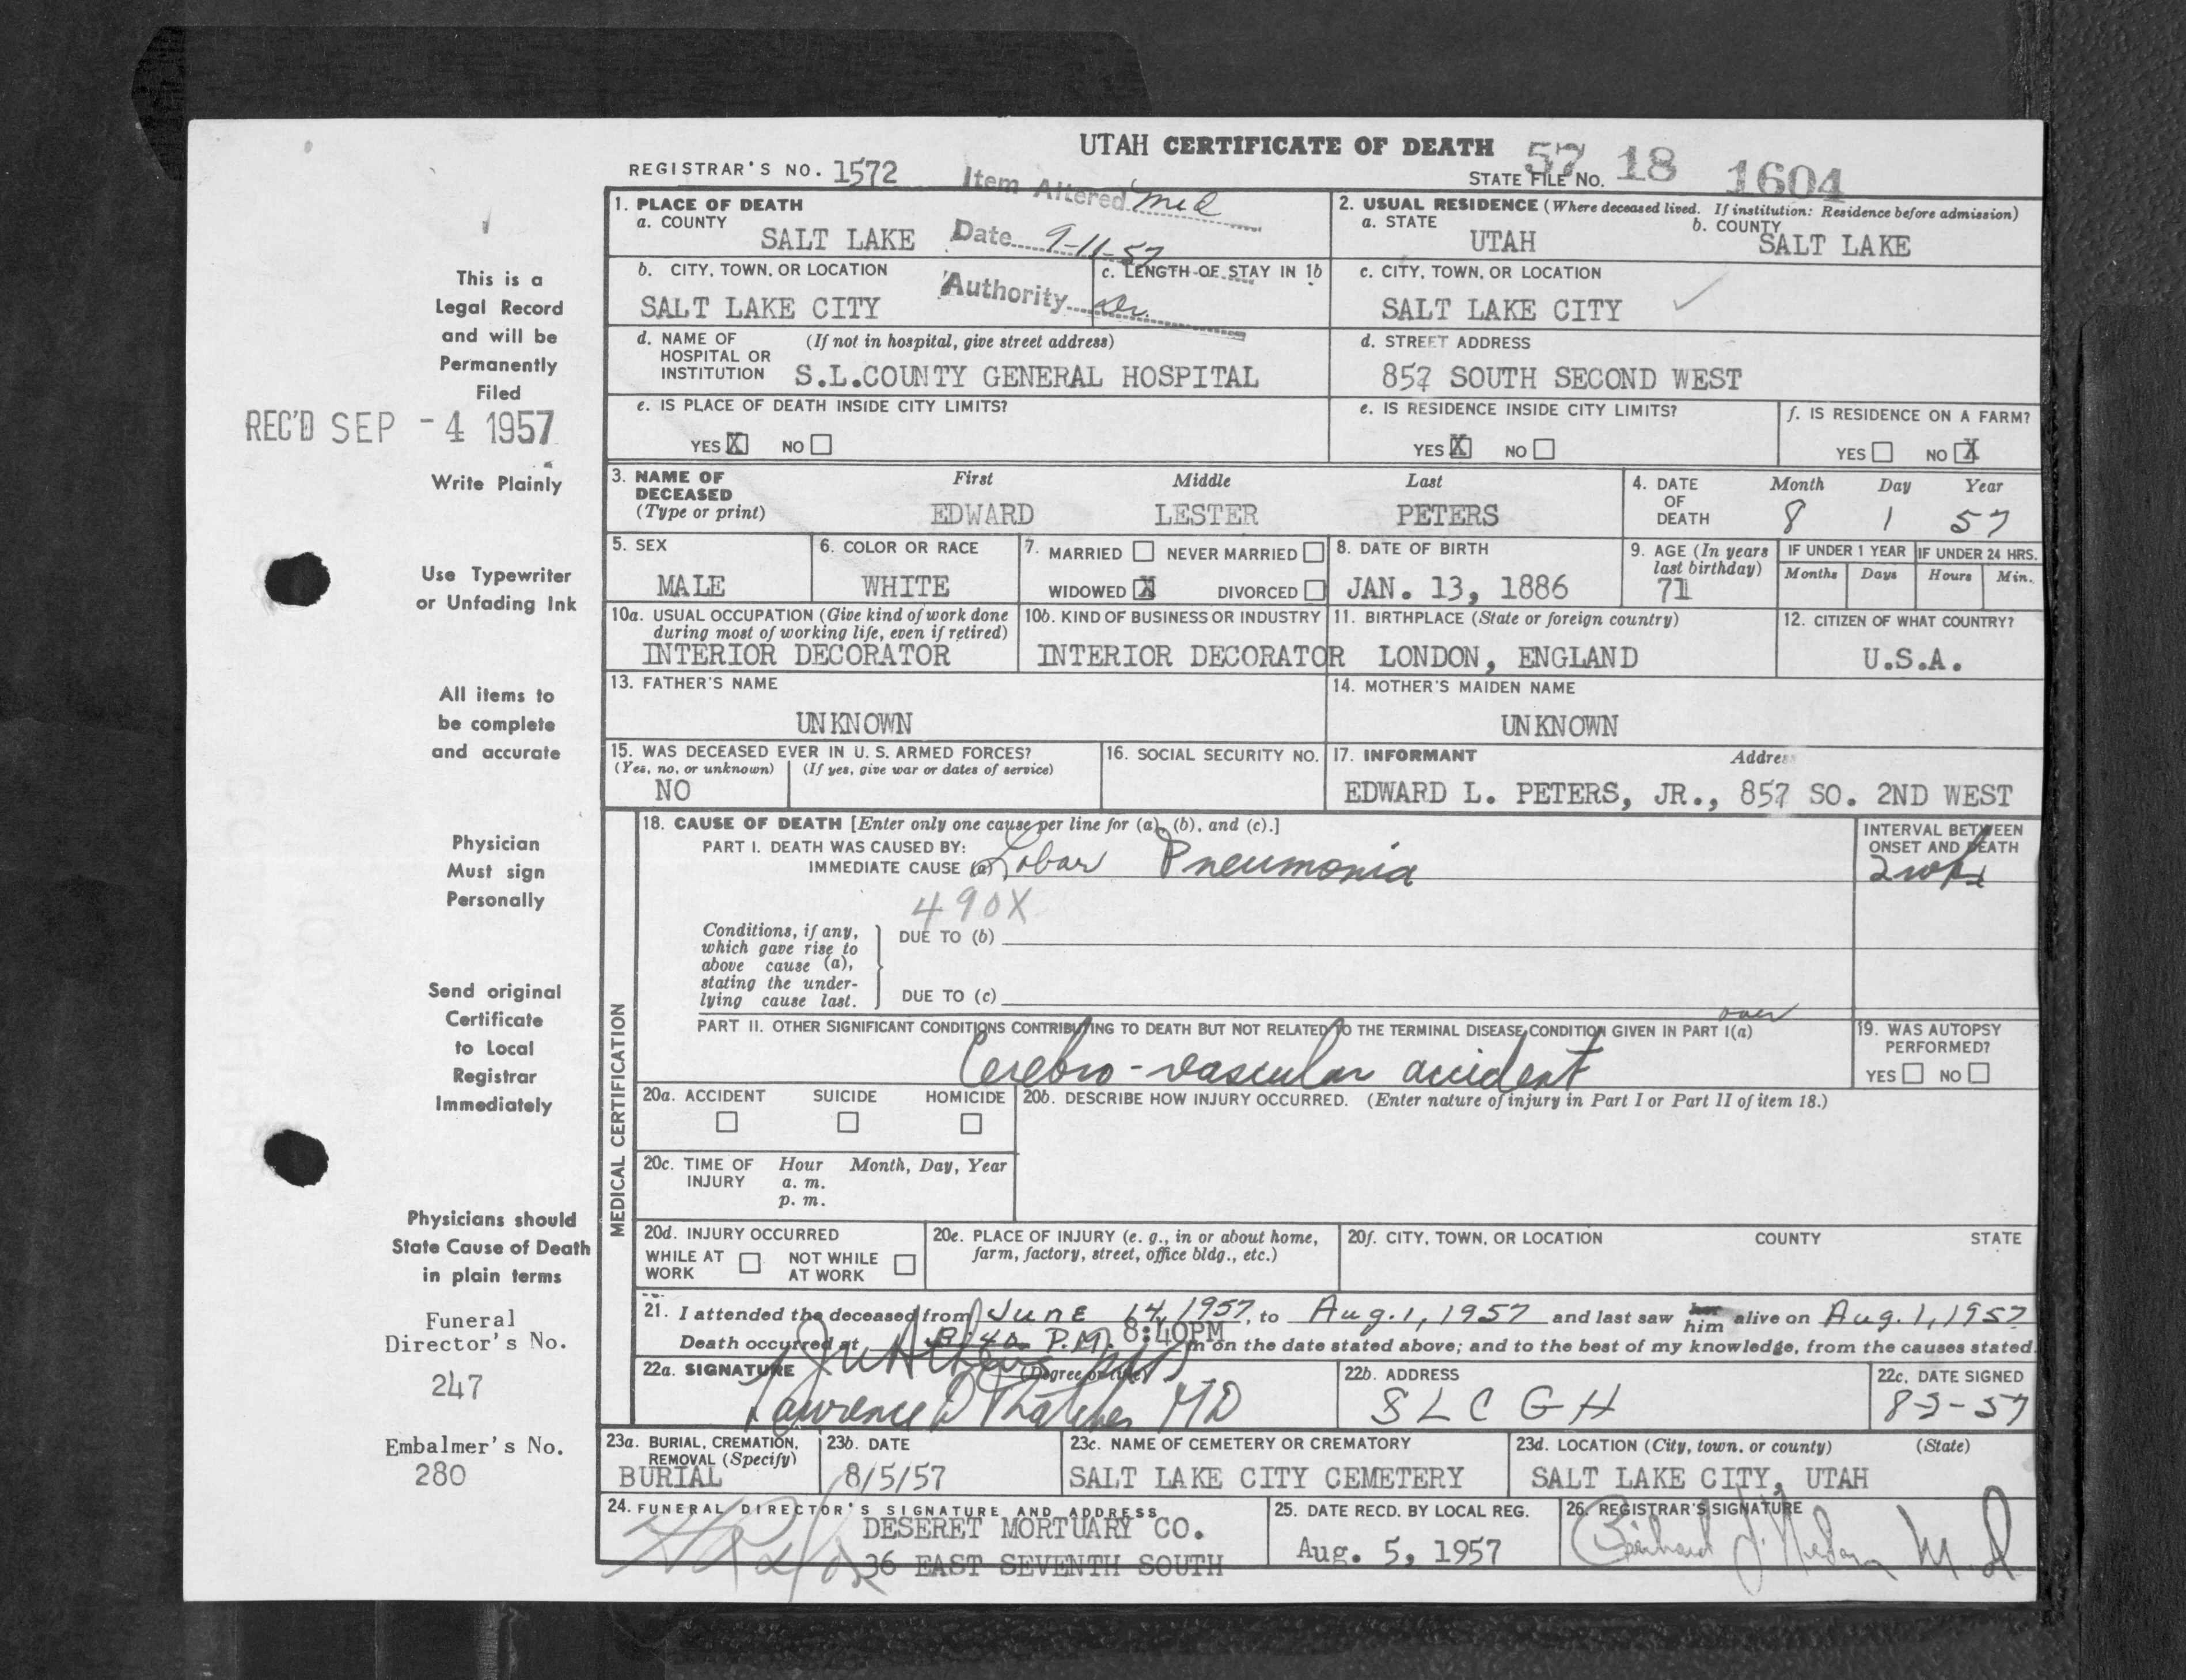 UTAH CERTIFICATE OF DEATH
REGISTRAR'S NO. 1572
STATE FILE NO. 57 18 1604
Item Altered Med
Date 9-11-57
Authority Dr.
This is a
Legal Record
and will be
Permanently
Filed
REC'D SEP -4 1957
Write Plainly
Use Typewriter
or Unfading Ink
All items to
be complete
and accurate
Physician
Must sign
Personally
Send original
Certificate
to Local
Registrar
Immediately
Physicians should
State Cause of Death
in plain terms
Funeral
Director's No.
247
Embalmer's No.
280
1. PLACE OF DEATH
a. COUNTY
SALT LAKE
2. USUAL RESIDENCE (Where deceased lived. If institution: Residence before admission)
a. STATE
UTAH
b. COUNTY
SALT LAKE
b. CITY, TOWN, OR LOCATION
SALT LAKE CITY
c. LENGTH OF STAY IN 1b
c. CITY, TOWN, OR LOCATION
SALT LAKE CITY
d. NAME OF (If not in hospital, give street address)
HOSPITAL OR
INSTITUTION S.L.COUNTY GENERAL HOSPITAL
d. STREET ADDRESS
857 SOUTH SECOND WEST
e. IS PLACE OF DEATH INSIDE CITY LIMITS?
YES X NO
e. IS RESIDENCE INSIDE CITY LIMITS?
YES X NO
f. IS RESIDENCE ON A FARM?
YES NO X
3. NAME OF
DECEASED
(Type or print)
First Middle Last
EDWARD LESTER PETERS
4. DATE
OF
DEATH
Month Day Year
8 1 57
5. SEX
MALE
6. COLOR OR RACE
WHITE
7. MARRIED NEVER MARRIED
WIDOWED X DIVORCED
8. DATE OF BIRTH
JAN. 13, 1886
9. AGE (In years
last birthday)
71
IF UNDER 1 YEAR
Months Days
IF UNDER 24 HRS.
Hours Min.
10a. USUAL OCCUPATION (Give kind of work done
during most of working life, even if retired)
INTERIOR DECORATOR
10b. KIND OF BUSINESS OR INDUSTRY
INTERIOR DECORATOR
11. BIRTHPLACE (State or foreign country)
LONDON, ENGLAND
12. CITIZEN OF WHAT COUNTRY?
U.S.A.
13. FATHER'S NAME
UNKNOWN
14. MOTHER'S MAIDEN NAME
UNKNOWN
15. WAS DECEASED EVER IN U. S. ARMED FORCES?
(Yes, no, or unknown) (If yes, give war or dates of service)
NO
16. SOCIAL SECURITY NO.
17. INFORMANT Address
EDWARD L. PETERS, JR., 857 SO. 2ND WEST
MEDICAL CERTIFICATION
18. CAUSE OF DEATH [Enter only one cause per line for (a), (b), and (c).]
PART I. DEATH WAS CAUSED BY:
IMMEDIATE CAUSE (a) Lobar Pneumonia
INTERVAL BETWEEN
ONSET AND DEATH
2 wks
490X
Conditions, if any,
which gave rise to
above cause (a),
stating the under-
lying cause last.
DUE TO (b)
DUE TO (c)
over
PART II. OTHER SIGNIFICANT CONDITIONS CONTRIBUTING TO DEATH BUT NOT RELATED TO THE TERMINAL DISEASE CONDITION GIVEN IN PART I(a)
Cerebro-vascular accident
19. WAS AUTOPSY
PERFORMED?
YES NO
20a. ACCIDENT SUICIDE HOMICIDE
20b. DESCRIBE HOW INJURY OCCURRED. (Enter nature of injury in Part I or Part II of item 18.)
20c. TIME OF
INJURY
Hour Month, Day, Year
a. m.
p. m.
20d. INJURY OCCURRED
WHILE AT
WORK
NOT WHILE
AT WORK
20e. PLACE OF INJURY (e. g., in or about home,
farm, factory, street, office bldg., etc.)
20f. CITY, TOWN, OR LOCATION COUNTY STATE
21. I attended the deceased from June 14, 1957, to Aug. 1, 1957 and last saw her him alive on Aug. 1, 1957
Death occurred at 8:40 P.M. 8:40PM m on the date stated above; and to the best of my knowledge, from the causes stated.
22a. SIGNATURE (Degree or title)
Lawrence D Thatcher MD
22b. ADDRESS
SLCGH
22c. DATE SIGNED
8-5-57
23a. BURIAL, CREMATION,
REMOVAL (Specify)
BURIAL
23b. DATE
8/5/57
23c. NAME OF CEMETERY OR CREMATORY
SALT LAKE CITY CEMETERY
23d. LOCATION (City, town, or county) (State)
SALT LAKE CITY, UTAH
24. FUNERAL DIRECTOR'S SIGNATURE AND ADDRESS
DESERET MORTUARY CO.
36 EAST SEVENTH SOUTH
25. DATE RECD. BY LOCAL REG.
Aug. 5, 1957
26. REGISTRAR'S SIGNATURE
M.D.